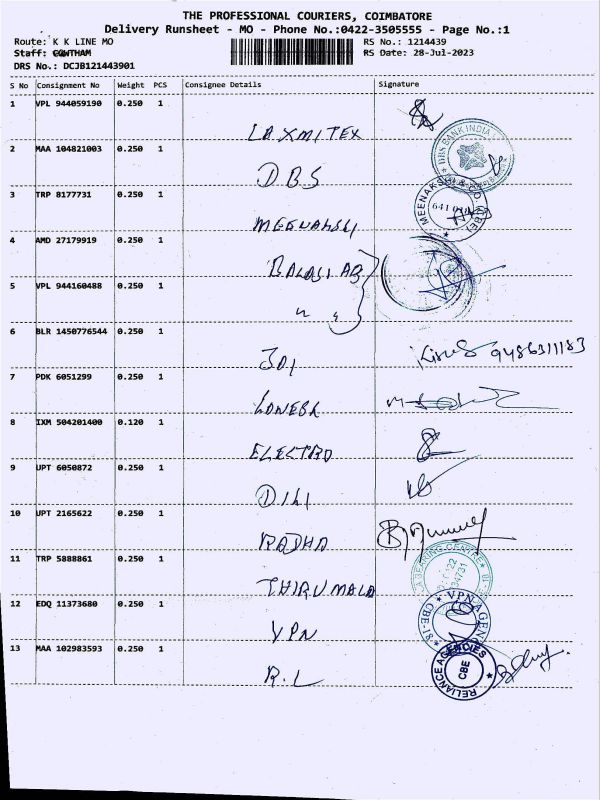 THE PROFESSIONAL COURIERS, COIMBATORE
Delivery Runsheet - MO - Phone No.:0422-3505555 - Page No.:1
Route: K K LINE MO
RS No.: 1214439
Staff: GOWTHAM
RS Date: 28-Jul-2023
DRS No.: DCJB121443901
S No Consignment No Weight PCS Consignee Details Signature
1 VPL 944059190 0.250 1
LAXMITEX
2 MAA 104821003 0.250 1
DBS
DBS BANK INDIA
3 TRP 8177731 0.250 1
MEENAKSHI
MEENAKSHI & CO
4 AMD 27179919 0.250 1
BALAJI AB
5 VPL 944160488 0.250 1
" "
6 BLR 1450776544 0.250 1
JOI
9486311183
7 PDK 6051299 0.250 1
8 IXM 504201400 0.120 1
ELECTRO
9 UPT 6050872 0.250 1
10 UPT 2165622 0.250 1
RADHA
11 TRP 5888861 0.250 1
THIRUMALA
BEARING CENTRE
12 EDQ 11373680 0.250 1
VPN
VPN AGENC
CBE-18
13 MAA 102983593 0.250 1
R.L
RELIANCE AGENCIES
CBE